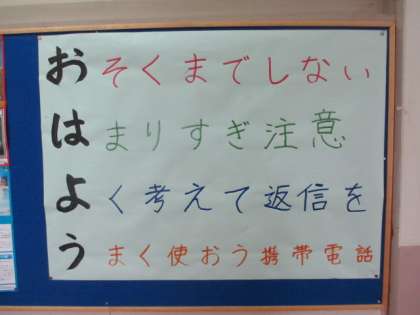 おそくまでしない
はまりすぎ注意
よく考えて返信を
うまく使おう携帯電話